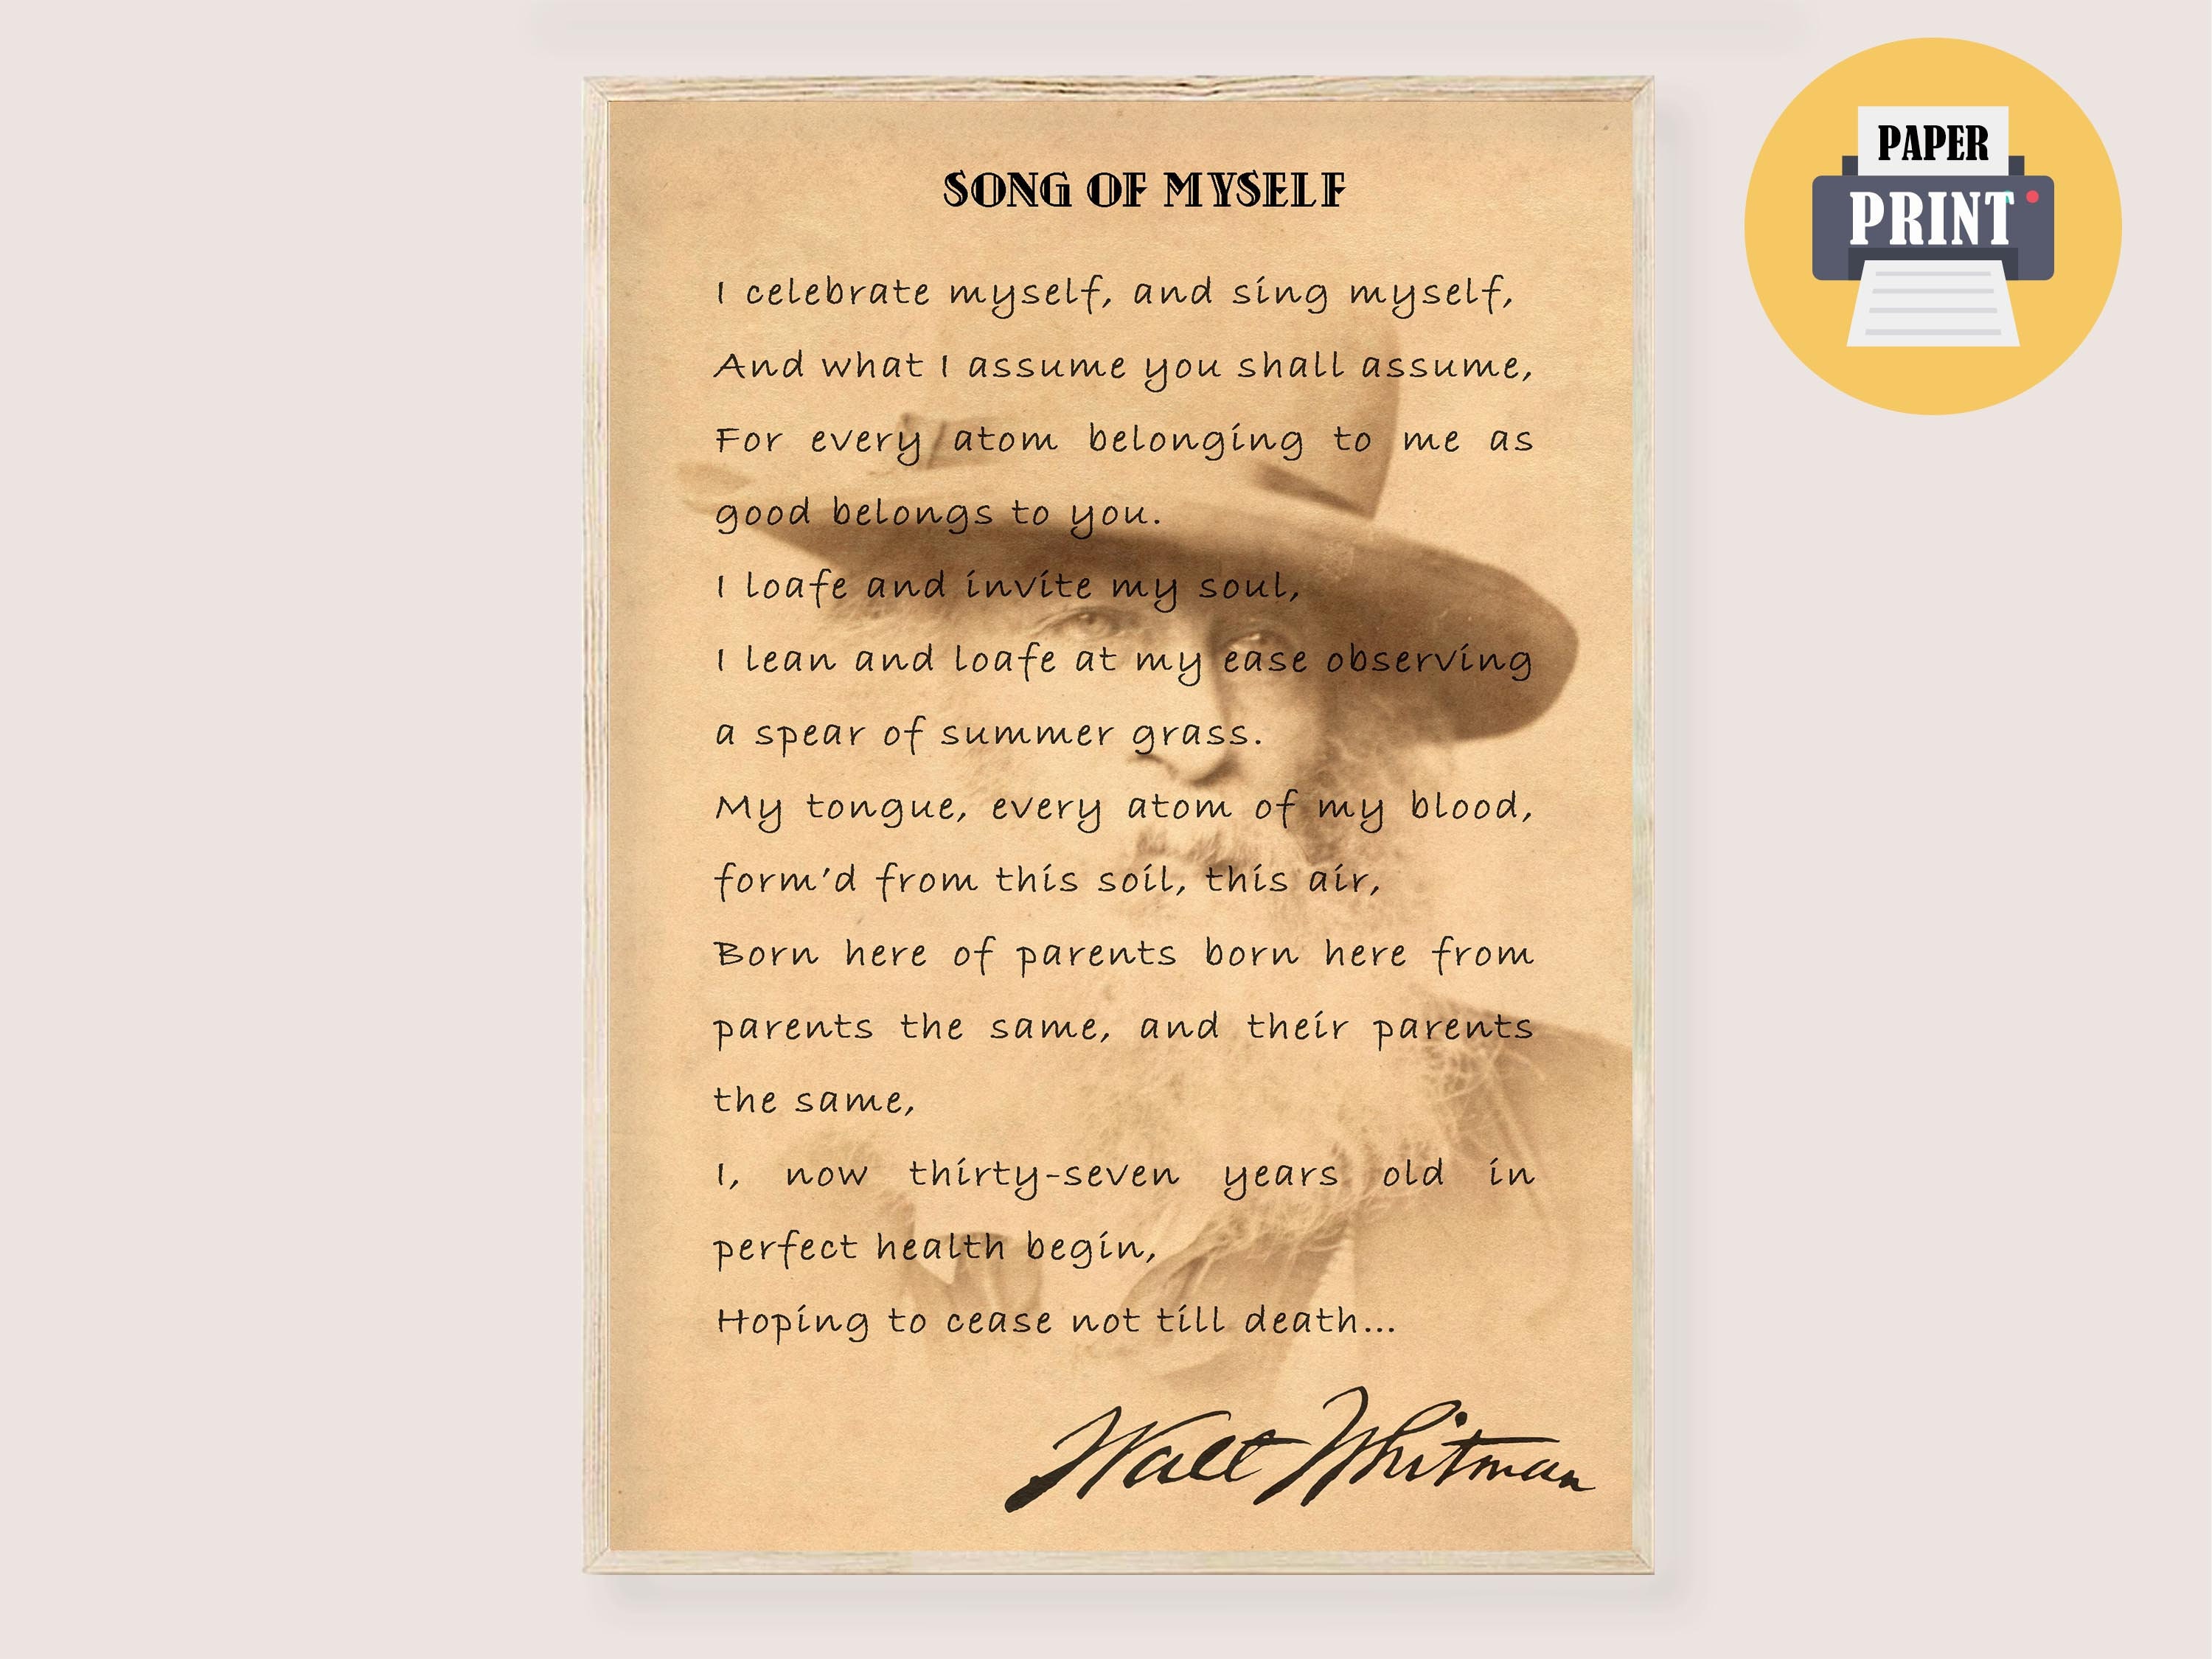 SONG OF MYSELF
I celebrate myself, and sing myself,
And what I assume you shall assume,
For every atom belonging to me as
good belongs to you.
I loafe and invite my soul,
I lean and loafe at my ease observing
a spear of summer grass.
My tongue, every atom of my blood,
form’d from this soil, this air,
Born here of parents born here from
parents the same, and their parents
the same,
I, now thirty-seven years old in
perfect health begin,
Hoping to cease not till death...
Walt Whitman
PAPER
PRINT